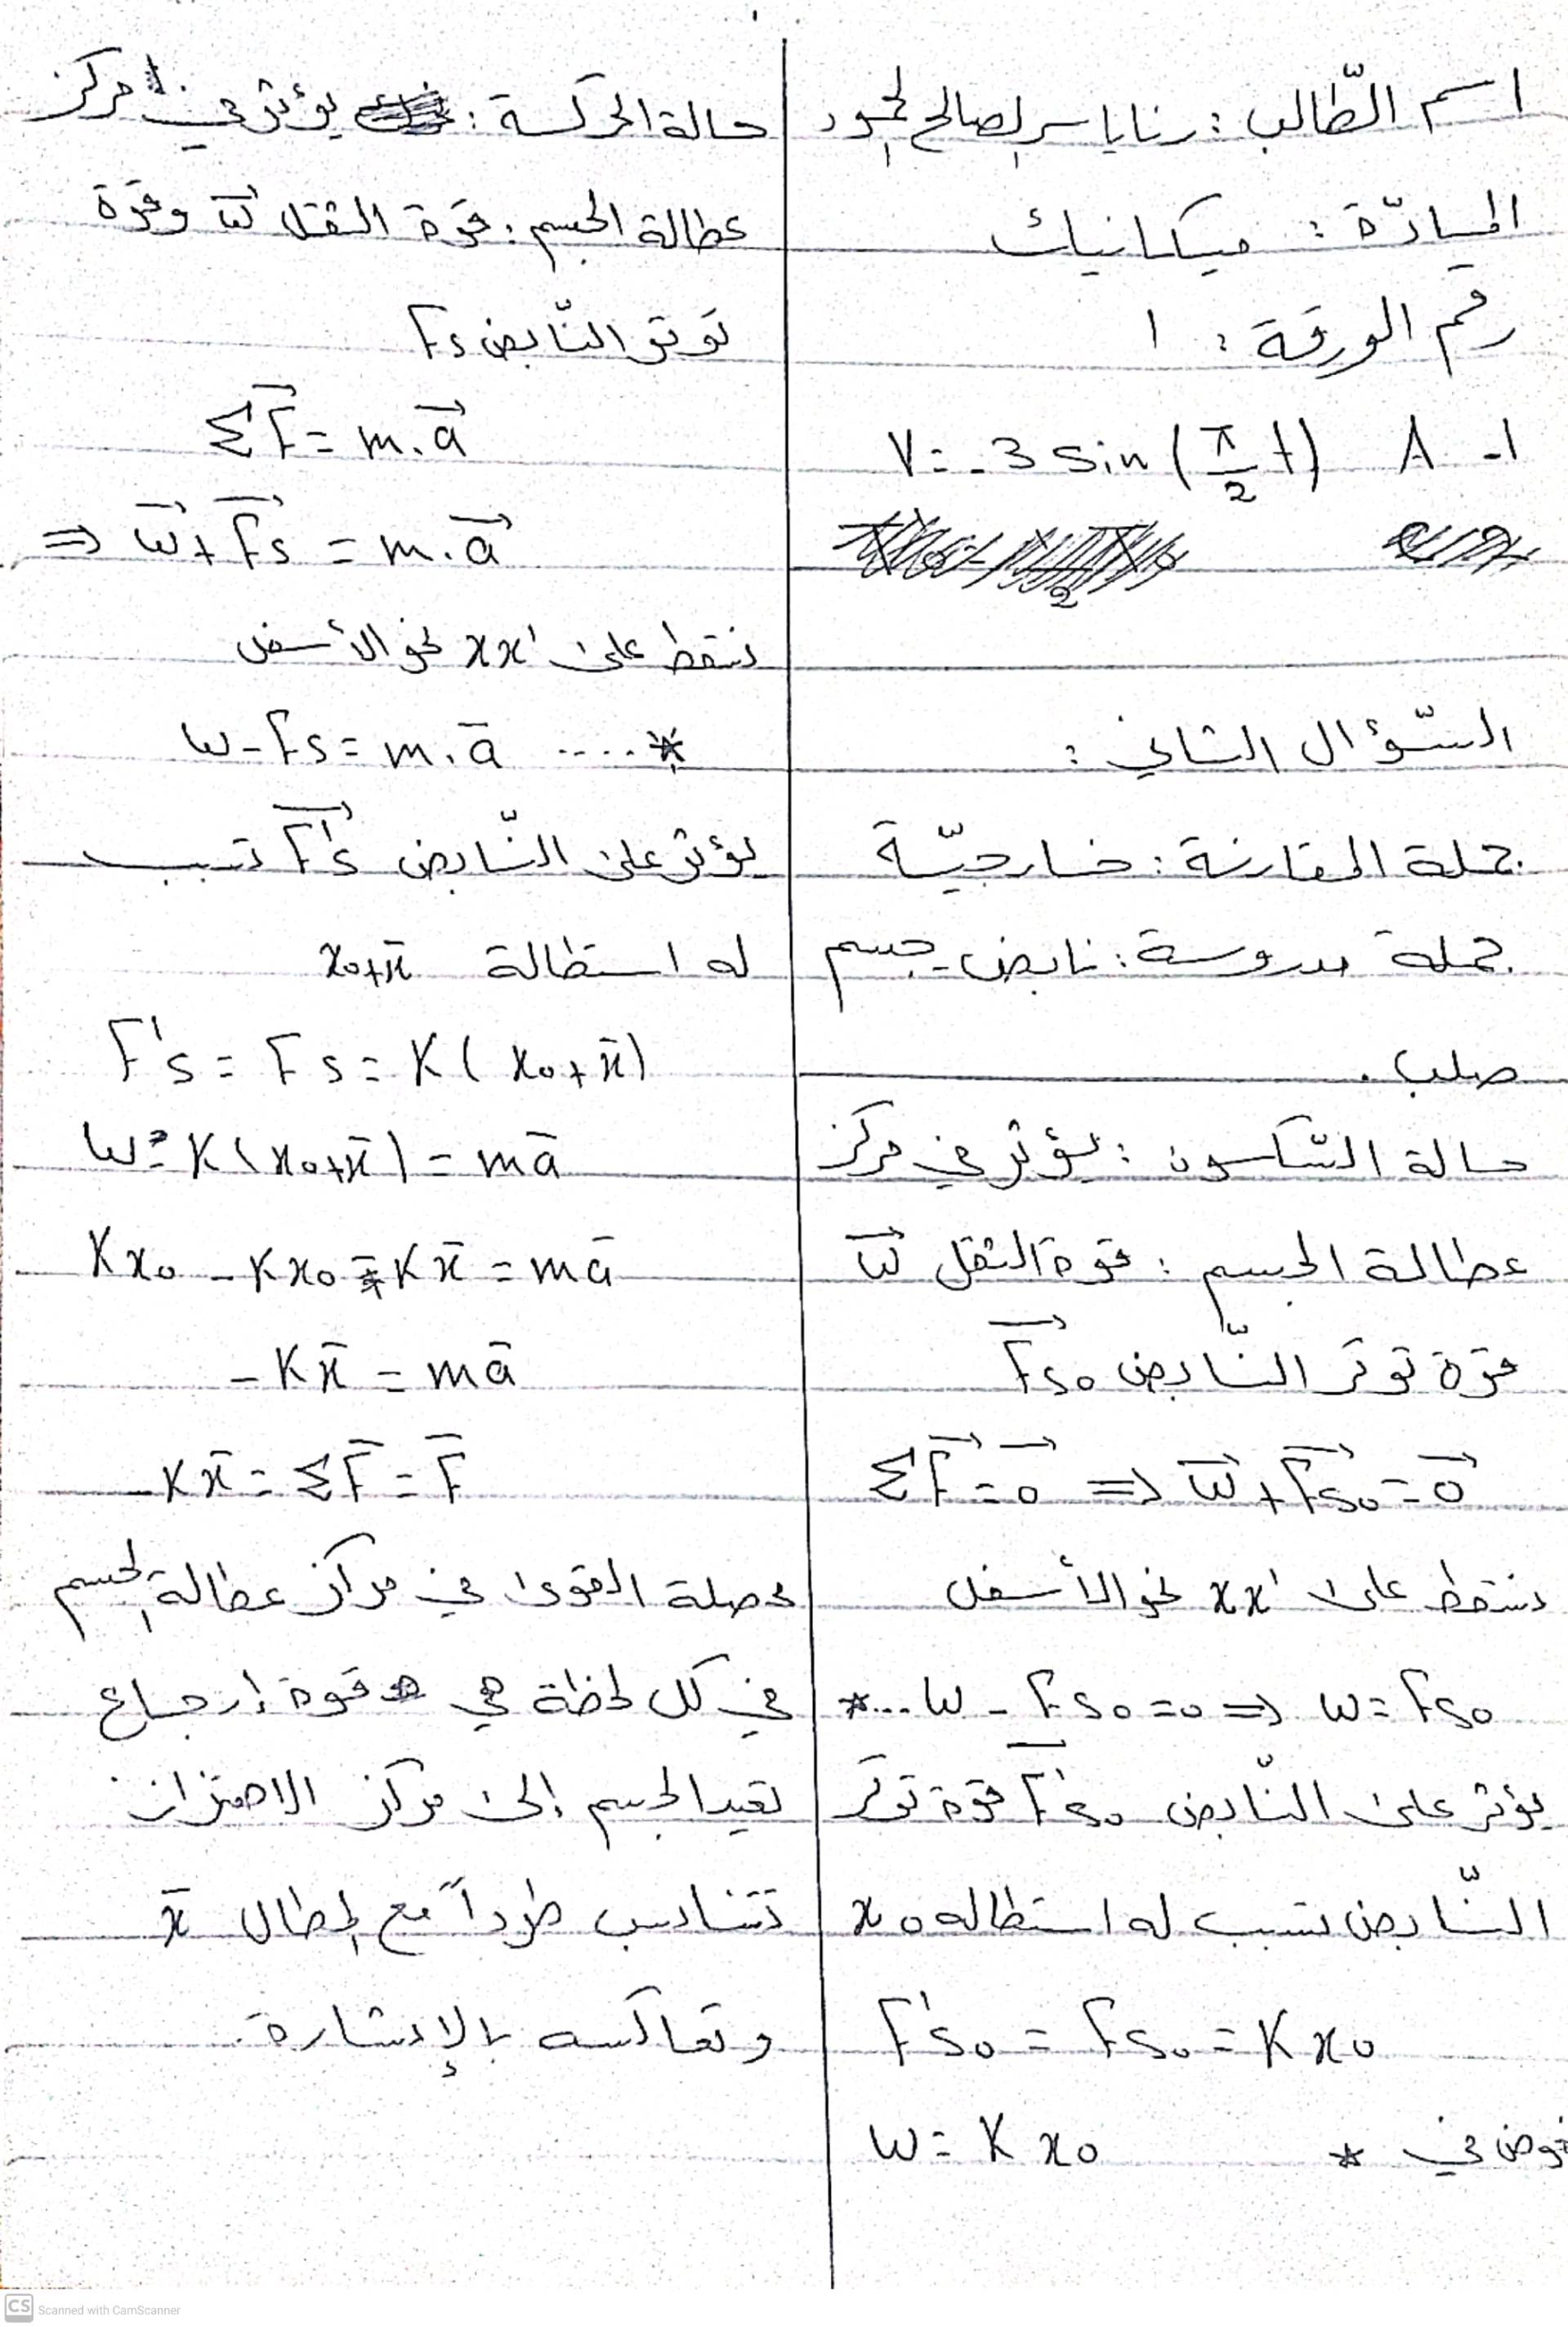 اسم الطّالب : رنا ياسر الصالح الحمود
المادّة : ميكانيك
رقم الورقة : ١
1- A V = -3 sin (π/2 t)
السّؤال الثاني :
جملة المقارنة : خارجيّة
جملة مدروسة : نابض - جسم
صلب .
حالة السّكون : يؤثر في مركز
عطالة الجسم : قوة الثقل w⃗
قوّة توتر النّابض F⃗s₀
ΣF⃗ = 0⃗ ⇒ w⃗ + F⃗s₀ = 0⃗
نسقط على xx' نحو الأسفل
*... w - Fs₀ = 0 ⇒ w = Fs₀
يؤثر على النّابض F's₀ قوّة توتر
النّابض تسبب له استطاله x₀
F's₀ = Fs₀ = K x₀
نعوض في * w = K x₀
حالة الحركة : يؤثر في مركز
عطالة الجسم : قوّة الثقل w⃗ وقوّة
توتر النّابض Fs
ΣF⃗ = m.a⃗
⇒ w⃗ + F⃗s = m.a⃗
نسقط على xx' نحو الأسفل
w - Fs = m.a̅ ....*
يؤثر على النّابض F⃗'s تسبب
له استطالة x₀+x̅
F's = Fs = K(x₀+x̅)
w - K(x₀+x̅) = ma̅
Kx₀ - Kx₀ - Kx̅ = ma̅
-Kx̅ = ma̅
-Kx̅ = ΣF̅ = F̅
محصلة القوى في مركز عطالة الجسم
في كل لحظة هي قوة إرجاع
تعيد الجسم إلى مركز الاهتزاز
تتناسب طرداً مع المطال x̅
وتعاكسه بالإشارة.
CS Scanned with CamScanner